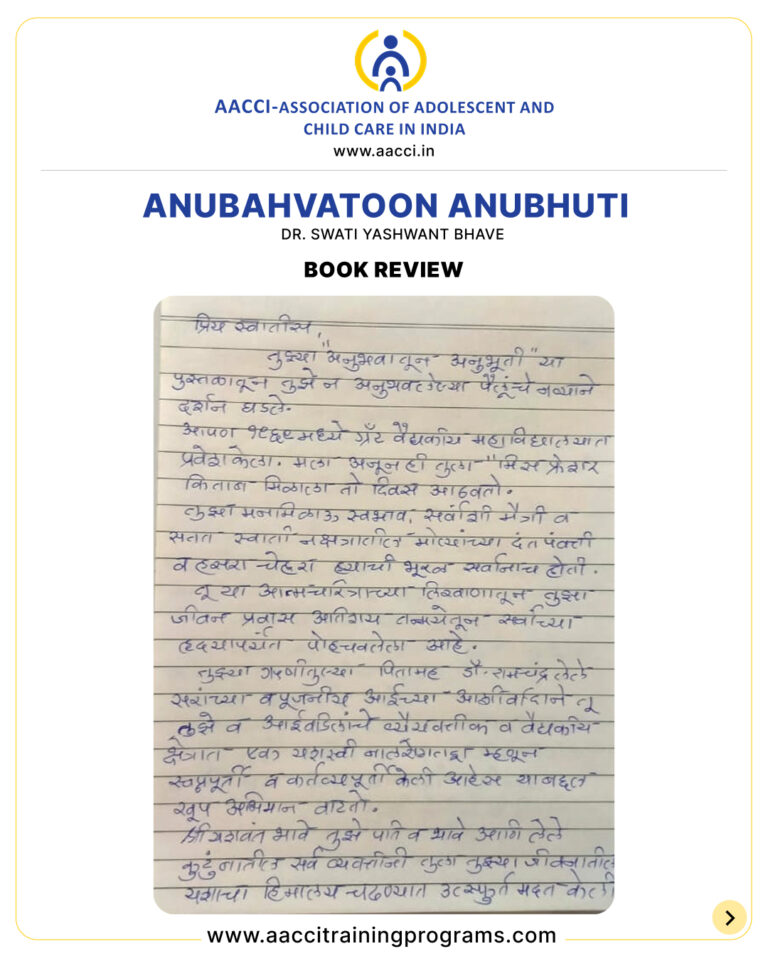 AACCI-ASSOCIATION OF ADOLESCENT AND
CHILD CARE IN INDIA
www.aacci.in
ANUBAHVATOON ANUBHUTI
DR. SWATI YASHWANT BHAVE
BOOK REVIEW
प्रिय स्वातीस,
तुझ्या "अनुभवातून अनुभूती" या
पुस्तकातून तुझे न अनुभवलेल्या पैलूंचे नव्याने
दर्शन घडले.
आपण १९६९मध्ये ग्रँट वैद्यकीय महाविद्यालयात
प्रवेश केला. मला अजूनही तुला "मिस फ्रेशर
किताब मिळाला तो दिवस आठवतो.
तुझा मनमिळाऊ स्वभाव, सर्वांशी मैत्री व
सतत स्वाती नक्षत्रातील मोत्यांच्या दंतपंक्ती
व हसरा चेहरा ह्याची भूरळ सर्वानाच होती.
तू या आत्मचरित्राच्या लिखाणातून तुझा
जीवन प्रवास अतिशय तन्मयतेतून सर्वाच्या
हृदयापर्यंत पोहचवलेला आहे.
तुझ्या पितामह डॉ. रामचंद्र लेले
सरांच्या व पूजनीय आईच्या आशीर्वादाने तू
तुझे व आईवडिलांचे व्यैयक्तीक व वैद्यकीय
क्षेत्रात एक यशस्वी बालरोगतज्ञ म्हणून
स्वप्नपूर्ती व कर्तव्यपूर्ती केली आहेस याबद्दल
खूप अभिमान वाटतो.
श्री यशवंत भावे तुझे पति व भावे आणि लेले
कुटुंबातील सर्व व्यक्तींनी तुला तुझ्या जीवनातील
यशाचा हिमालय चढण्यात उत्स्फुर्त मदत केली
www.aaccitrainingprograms.com